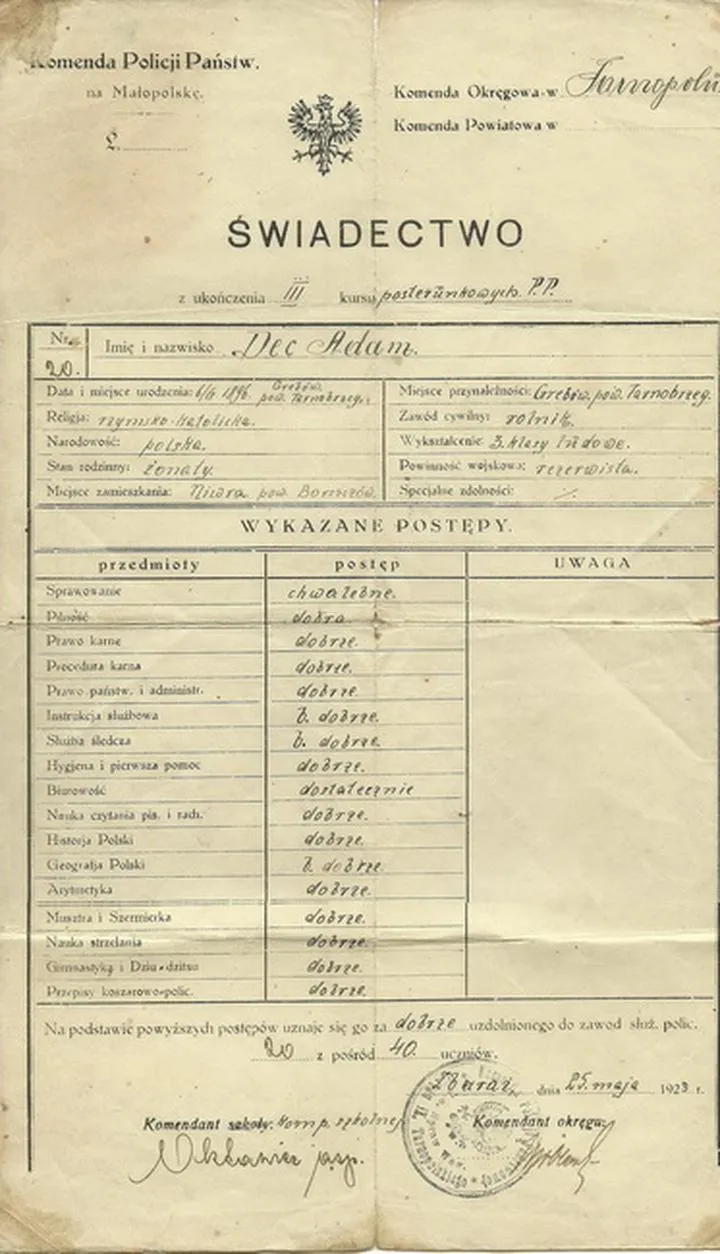 Komenda Policji Państw.
na Małopolskę.
Komenda Okręgowa w Tarnopolu
Komenda Powiatowa w
L.
ŚWIADECTWO
z ukończenia III kursu posterunkowych P.P.
Nr. 20. Imię i nazwisko Dec Adam.
Data i miejsce urodzenia: 1896 Grębów, pow. Tarnobrzeg.
Miejsce przynależności: Grębów, pow. Tarnobrzeg.
Religja: rzymsko-katolicka.
Zawód cywilny: rolnik.
Narodowość: polska.
Wykształcenie: 3. klasy ludowe.
Stan rodzinny: żonaty.
Powinność wojskowa: rezerwista.
Miejsce zamieszkania: Niwra pow. Borszczów.
Specjalne zdolności:
WYKAZANE POSTĘPY.
przedmioty postęp UWAGA
Sprawowanie chwalebne.
Pilność dobra.
Prawo karne dobrze.
Procedura karna dobrze.
Prawo państw. i administr. dobrze.
Instrukcja służbowa b. dobrze.
Służba śledcza b. dobrze.
Hygjena i pierwsza pomoc dobrze.
Biurowość dostatecznie
Nauka czytania pis. i rach. dobrze.
Historja Polski dobrze.
Geografja Polski b. dobrze.
Arytmetyka dobrze.
Musztra i Szermierka dobrze.
Nauka strzelania dobrze.
Gimnastyka i Dziu-dzitsu dobrze.
Przepisy koszarowo-polic. dobrze.
Na podstawie powyższych postępów uznaje się go za dobrze uzdolnionego do zawod służ. polic.
20 z pośród 40. uczniów.
Zbaraż, dnia 25. maja 1923 r.
Komendant szkoły. komp. szkolnej
Komendant okręgu: